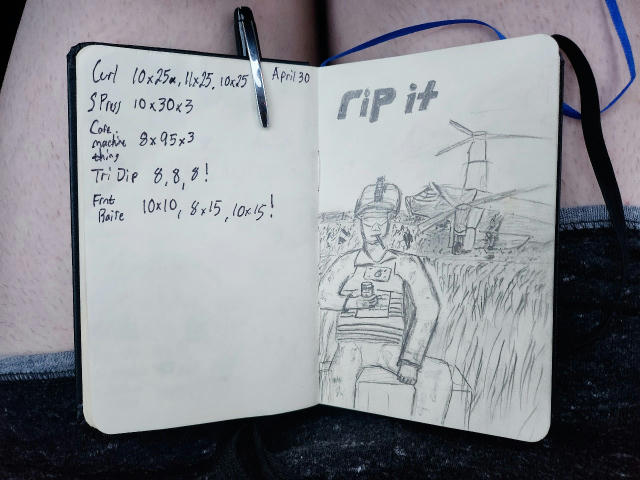 April 30
Curl 10x25, 11x25, 10x25
S Press 10x30x3
Core
machine 8x95x3
thing
Tri Dip 8, 8, 8!
Frnt
Raise 10x10, 8x15, 10x15!
rip it